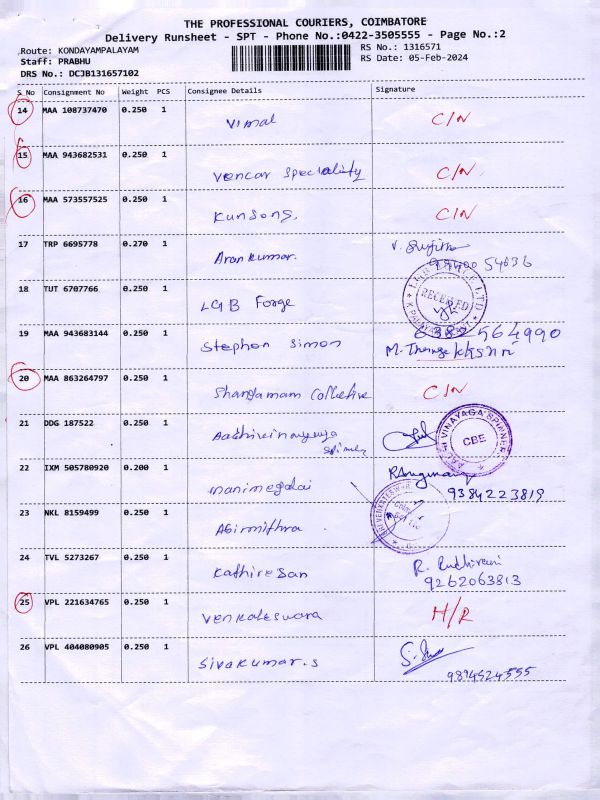 THE PROFESSIONAL COURIERS, COIMBATORE
Delivery Runsheet - SPT - Phone No.:0422-3505555 - Page No.:2
Route: KONDAYAMPALAYAM
RS No.: 1316571
Staff: PRABHU
RS Date: 05-Feb-2024
DRS No.: DCJB131657102
S No Consignment No Weight PCS Consignee Details Signature
14 MAA 108737470 0.250 1 Vimal C/N
15 MAA 943682531 0.250 1 Vencar Speciality C/N
16 MAA 573557525 0.250 1 Kunsong. C/N
17 TRP 6695778 0.270 1 Arankumar. V. Sujitha
54636
18 TUT 6707766 0.250 1 LGB Forge RECEIVED
19 MAA 943683144 0.250 1 Stephen Simon 564990
M.
20 MAA 863264797 0.250 1 Shangamam Collective C/N
21 DDG 187522 0.250 1 VINAYAGA SPINNERS CBE
22 IXM 505780920 0.200 1 manimegalai
9384223819
23 NKL 8159499 0.250 1 Abirmithra.
24 TVL 5273267 0.250 1 Kathiresan R.
9262063813
25 VPL 221634765 0.250 1 Venkateswara H/R
26 VPL 404080905 0.250 1 Sivakumar.S
9894524555